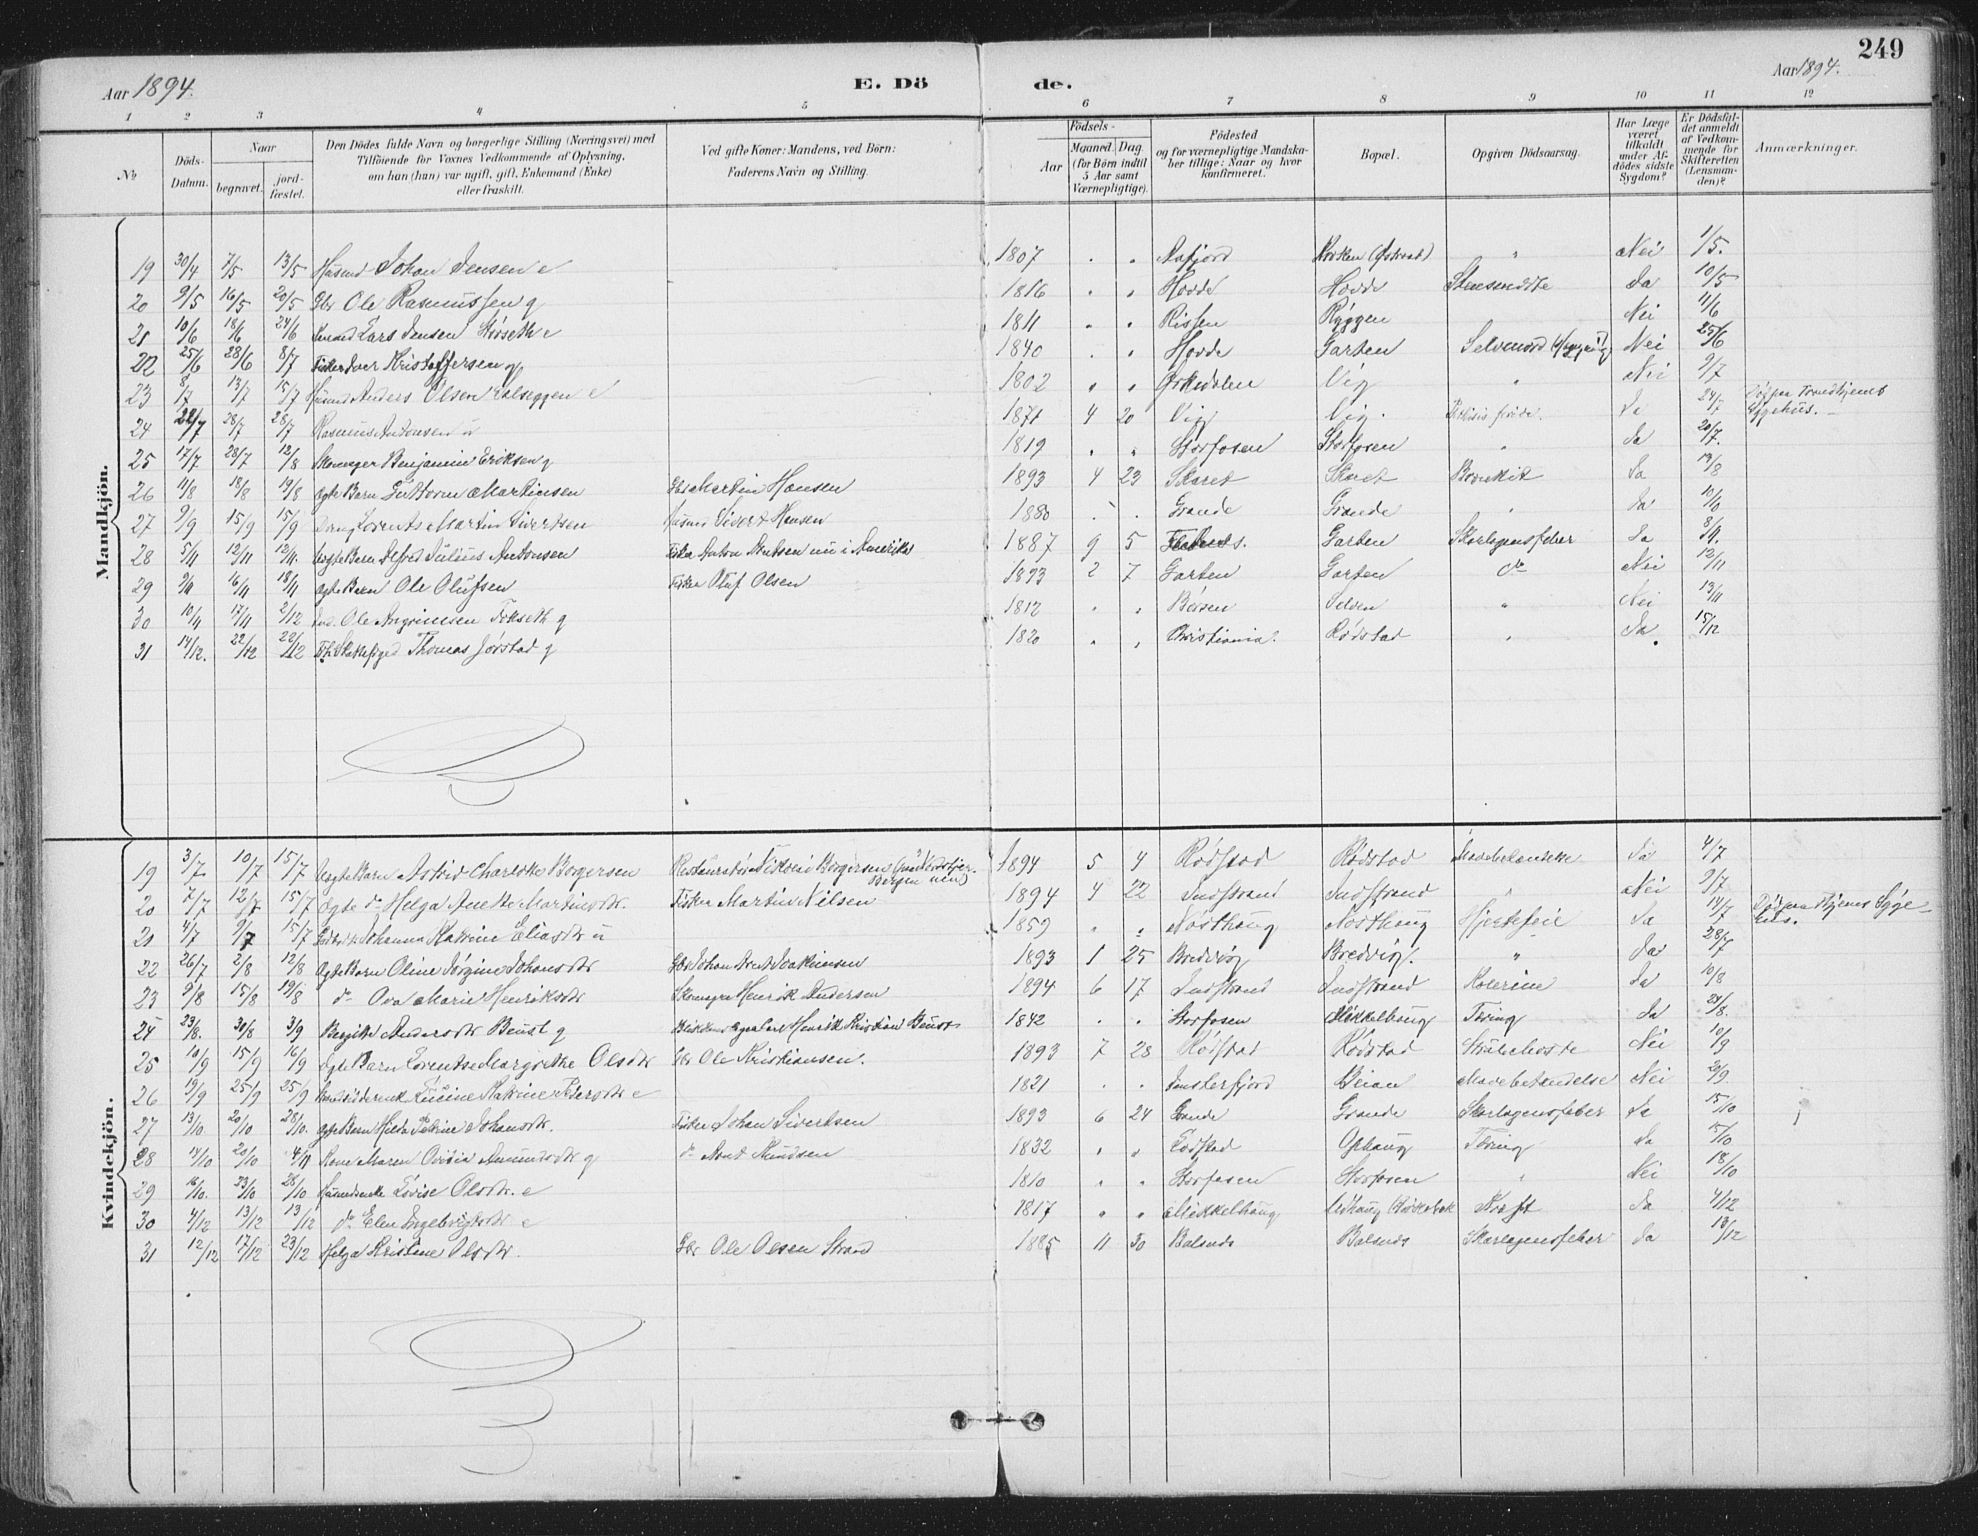 249
Aar 1894.
E. Dö
de.
Aar 1894.
1 2 3 4 5 6 7 8 9 10 11 12
No
Döds-Datum.
Naar
begravet.
jord-fæstet.
Den Dödes fulde Navn og borgerlige Stilling (Næringsvei) med
Tilföiende for Voxnes Vedkommende af Oplysning,
om han (hun) var ugift, gift, Enkemand (Enke)
eller fraskilt.
Ved gifte Koner: Mandens, ved Börn:
Faderens Navn og Stilling.
Födsels-
Aar
Maaned. Dag.
(for Börn indtil
5 Aar samt
Værnepligtige).
Födested
og for værnepligtige Mandska-
ber tillige: Naar og hvor
konfirmeret.
Bopæl.
Opgiven Dödsaarsag.
Har Læge
været
tilkaldt
under Af-
dödes sidste
Sygdom?
Er Dödsfal-
det anmeldt
af Vedkom-
mende for
Skifteretten
(Lensman-
den)?
Anmærkninger.
Mandkjön.
19 30/4 7/5 13/5 Husmd Johan Jensen e 1807 " " Aafjord (Østraat) " Nei 1/5.
20 9/5 16/5 20/5 Gbr Ole Rasmussen g 1816 " " Hovde Hovde Ja 10/5
21 10/6 18/6 24/6 Lars Jensen e 1811 " " Rissen Ryggen Nei 11/6
22 25/6 28/6 8/7 Fisker Iver Kristoffersen g 1840 " " Hovde Garten Selvmord Nei 25/6
23 8/7 13/7 15/7 Husmd Anders Olsen e 1802 " " Ørkedalen Vig " Nei 9/7
24 22/7 28/7 28/7 Rasmus Antonsen u 1871 4 20 Vig Vig. Ja 24/7 Död paa Trondhjems Sygehus.
25 17/7 28/7 12/8 Skomager Benjamin Eriksen g 1819 " " Storfosen Storfosen " Ja 20/7.
26 11/8 18/8 19/8 Ægte Barn Guttorm Martinsen Gbr Martin Hansen 1893 4 23 Skaret Skaret Bronkit Ja 13/8
27 9/9 15/9 15/9 Lorents Martin Sivertsen Husmd Sivert Hansen 1880 " " Grande Grande " Ja
28 5/11 12/11 12/11. Ægte Barn Alfred Julius Antonsen Fisker Anton Arntsen nu i Amerika 1887 9 5 Garten Skarlagensfeber Ja 8/11.
29 9/11 16/11 18/11 Ægte Barn Ole Olufsen Fisker Oluf Olsen 1893 2 7 Garten Garten do Nei 12/11
30 10/11 17/11 2/12 Ole Angrimsen g 1812 " " Börsen Selven " Nei 13/11
31 14/12. 22/12 22/12 Thomas Jörstad g 1820 " " Christiania. Rödstad " Ja 15/12
Kvindekjön.
19 3/7 10/7 15/7 Ægte Barn Astrid Charlotte Borgersen 1894 5 4 Rödstad Rödstad Ja 4/7
20 7/7 12/7 15/7 Ægte do Helga Anette Martinsdtr. Fisker Martin Nilsen 1894 4 22 Indstrand Indstrand " Nei 9/7
21 4/7 9/7 15/7 Johanna Katrine Eliasdtr u 1859 " " Nordhaug Nordhaug Hjertefeil Ja 14/7
22 26/7 2/8 12/8 Ægte Barn Oline Jörgine Johansdtr Gbr Johan Arnt Joakimsen 1893 1 25 Bredvig Bredvig. " Ja 28/7
23 9/8 15/8 19/8 do Ova Marie Henriksdtr Skomager Henrik Andersen 1894 6 17 Indstrand Indstrand Kolerine Ja 10/8
24 23/8. 30/8 3/9 Bergitte Andersdtr Beust g Carl Henrik Kristian Beust 1842 " " Storfosen Mikkelhaug Tæring Ja 24/8.
25 10/9 15/9 16/9 Ægte Barn Lorentse Margrethe Olsdtr Gbr Ole Kristiansen. 1893 7 28 Rödstad Rödstad Strubehoste Nei 10/9
26 19/9 25/9 25/9 Katrine Pedersdtr e 1821 " " Beian Mavebetændelse Nei 20/9.
27 13/10 20/10 28/10. Ægte Barn Petrine Johansdtr. Fisker Johan Sivertsen 1893 6 24 Grande Grande Skarlagensfeber Ja 15/10
28 14/10 20/10 4/11 Kone Maren Amundsdtr g do Arnt Knudsen 1832 " " Rödstad Ophaug Tæring Ja 15/10
29 16/10. 23/10 28/10 Husmdenke Lovise Olsdtr. e 1810 " " Storfosen Storfosen " Nei 18/10
30 4/12 13/12 13/12 do Elen Ingebrigtsdtr e 1817 " " Mikkelhaug Kræft Ja 4/12
31 12/12 17/12 23/12 Helga Kristine Olsdtr. Gbr Ole Olsen Strand 1885 11 30 Balsnes Balsnes Skarlagensfeber Ja 13/12